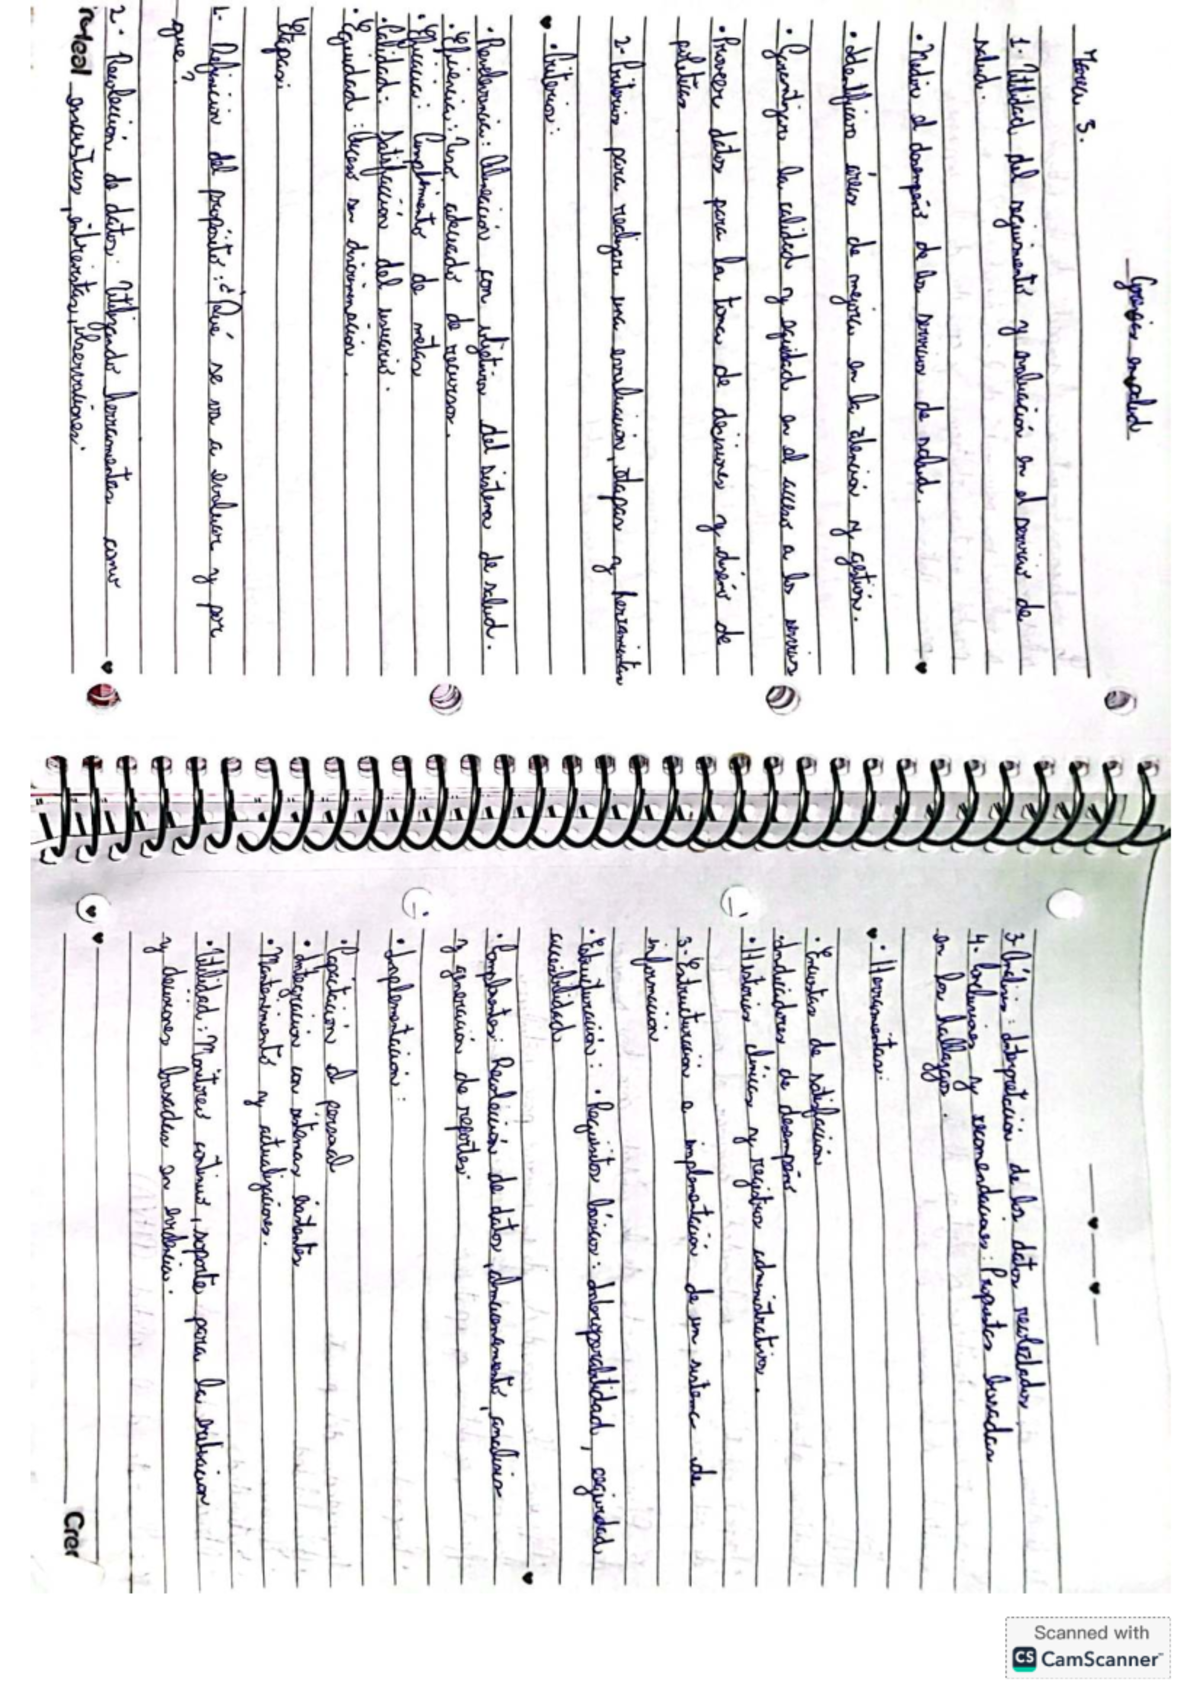 Gerencia en salud
Tarea 3.
1- Utilidad del seguimiento y evaluación en el servicio de
salud.
• Medir el desempeño de los servicios de salud.
• Identificar áreas de mejora en la atención y gestión.
• Garantizar la calidad y equidad en el acceso a los servicios
• Proveer datos para la toma de decisiones y diseño de
políticas.
2- Criterios para realizar una evaluación, etapas y herramientas
• Criterios:
• Relevancia: Alineación con objetivos del sistema de salud.
• Eficiencia: Uso adecuado de recursos.
• Eficacia: Cumplimiento de metas
• Calidad: Satisfacción del usuario.
• Equidad: Acceso sin discriminación.
Etapas:
1- Definición del propósito: ¿Qué se va a evaluar y por
que?
2- Recolección de datos: Utilizando herramientas como
encuestas, entrevistas, observaciones.
3- Análisis: Interpretación de los datos recolectados
4- Conclusiones y recomendaciones: Propuestas basadas
en los hallazgos.
• Herramientas:
• Encuestas de satisfacción
• Indicadores de desempeño
• Historias clínicas y registros administrativos.
3- Estructuración e implementación de un sistema de
información
• Estructuración: • Requisitos básicos: Interoperabilidad, seguridad
accesibilidad
• Componentes: Recolección de datos, almacenamiento, analisis
y generación de reportes.
• Implementación:
• Capacitación al personal
• Integración con sistemas existentes
• Mantenimiento y actualizaciones.
• Utilidad: Monitoreo continuo, soporte para la evaluacion
y decisiones basadas en evidencia.
Crer
Scanned with
CS CamScanner